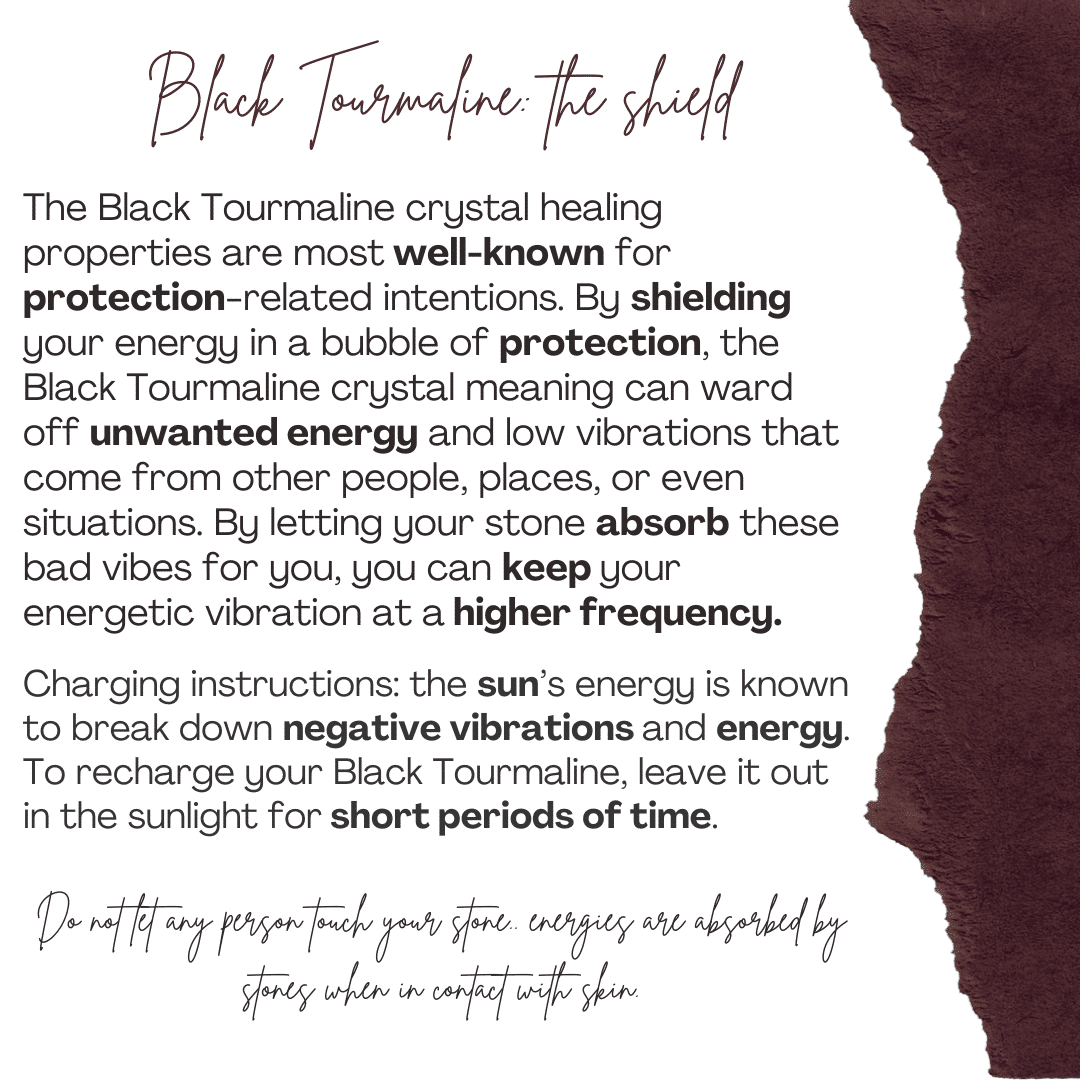 Black Tourmaline: the shield
The Black Tourmaline crystal healing
properties are most well-known for
protection-related intentions. By shielding
your energy in a bubble of protection, the
Black Tourmaline crystal meaning can ward
off unwanted energy and low vibrations that
come from other people, places, or even
situations. By letting your stone absorb these
bad vibes for you, you can keep your
energetic vibration at a higher frequency.
Charging instructions: the sun’s energy is known
to break down negative vibrations and energy.
To recharge your Black Tourmaline, leave it out
in the sunlight for short periods of time.
Do not let any person touch your stone.. energies are absorbed by
stones when in contact with skin.